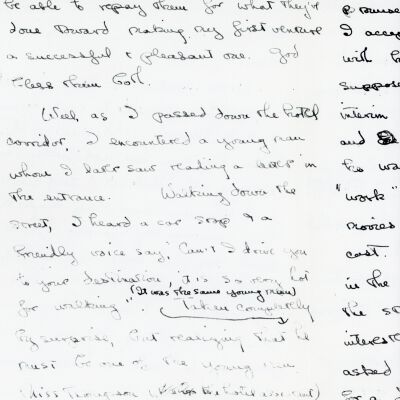 be able to repay them for what they've
done toward making my first venture
a successful & pleasant one. God
bless them both.
Well, as I passed down the hotel
corridor, I encountered a young man
whom I later saw reading a in
the entrance. Walking down the
street, I heard a car stop & a
friendly voice say, "Can't I drive you
to your destination, it is so very hot
for walking". (It was the same young man) Taken completely
by surprise, but realizing that he
must be one of the young men
Miss Thompson (the hotel assistant)
promise
I accep
will b
suppose
interim
and
too wa
"work"
movies
cast.
in the
the s
interest
asked
for a